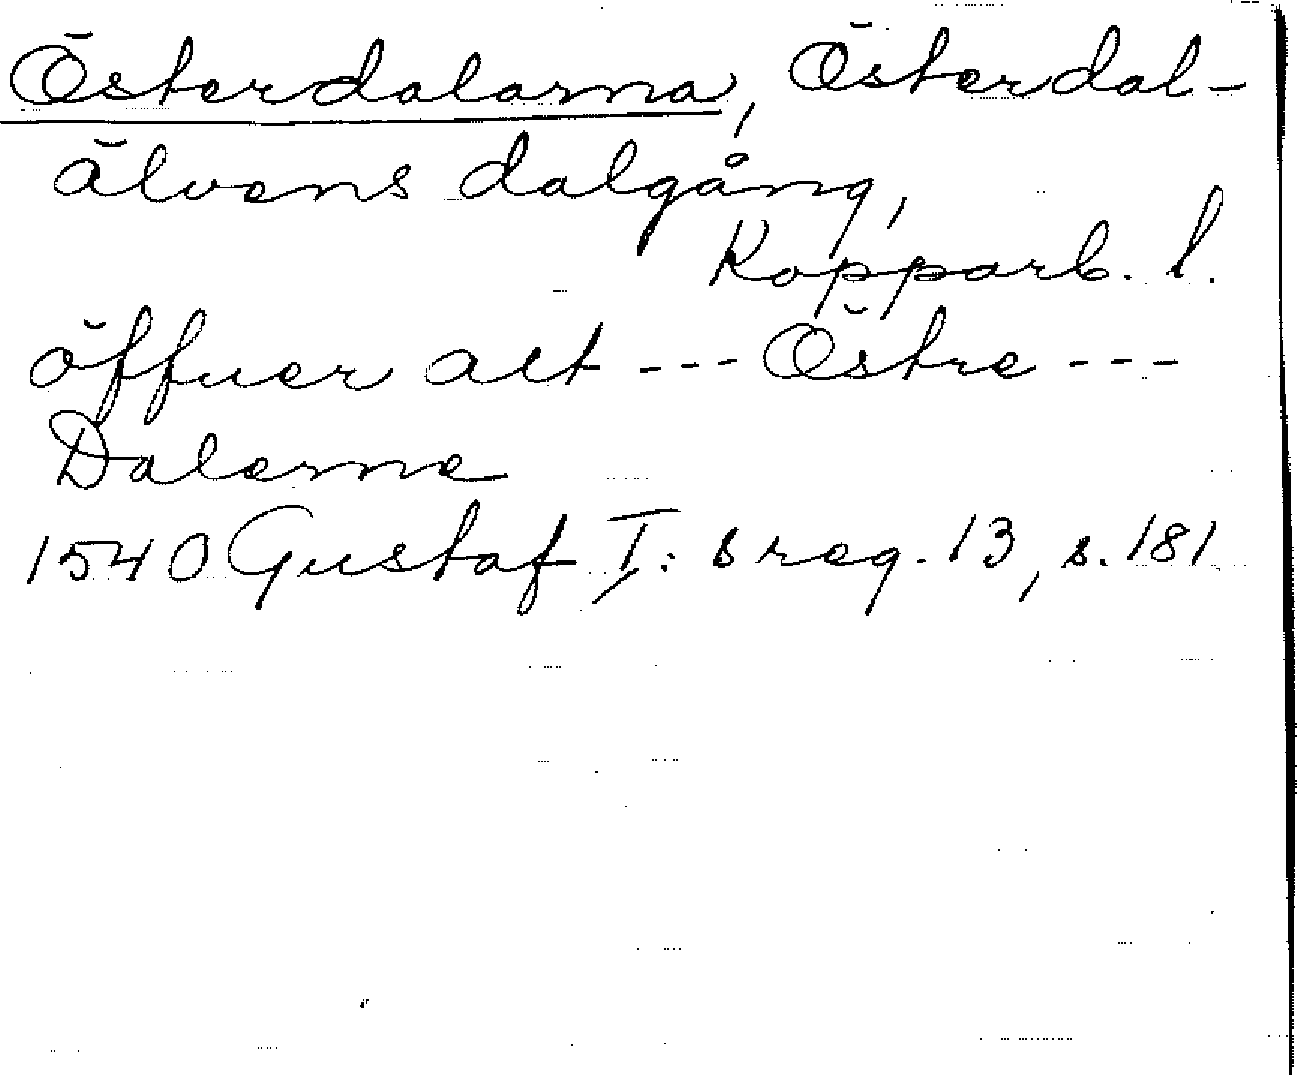 Österdalarna, Österdal-
älvens dalgång,
Kopparb. l.
öffuer alt --- Östre ---
Dalerne
1540 Gustaf I:s reg. 13, s. 181